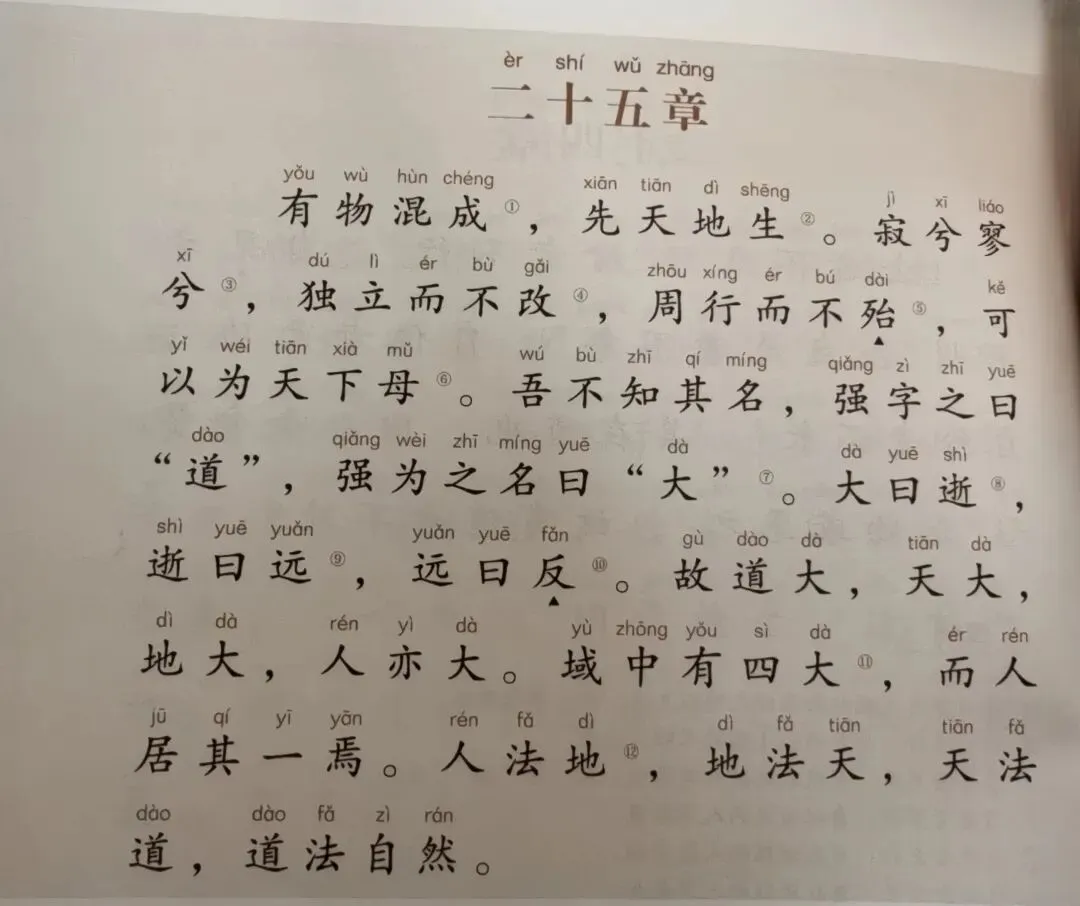 èr shí wǔ zhāng
二十五章
yǒu wù hùn chéng xiān tiān dì shēng jì xī liáo
有物混成①，先天地生②。寂兮寥
xī dú lì ér bù gǎi zhōu xíng ér bú dài kě
兮③，独立而不改④，周行而不殆⑤，可
yǐ wéi tiān xià mǔ wú bù zhī qí míng qiǎng zì zhī yuē
以为天下母⑥。吾不知其名，强字之曰
dào qiǎng wèi zhī míng yuē dà dà yuē shì
“道”，强为之名曰“大”⑦。大曰逝⑧，
shì yuē yuǎn yuǎn yuē fǎn gù dào dà tiān dà
逝曰远⑨，远曰反⑩。故道大，天大，
dì dà rén yì dà yù zhōng yǒu sì dà ér rén
地大，人亦大。域中有四大⑪，而人
jū qí yī yān rén fǎ dì dì fǎ tiān tiān fǎ
居其一焉。人法地⑫，地法天，天法
dào dào fǎ zì rán
道，道法自然。